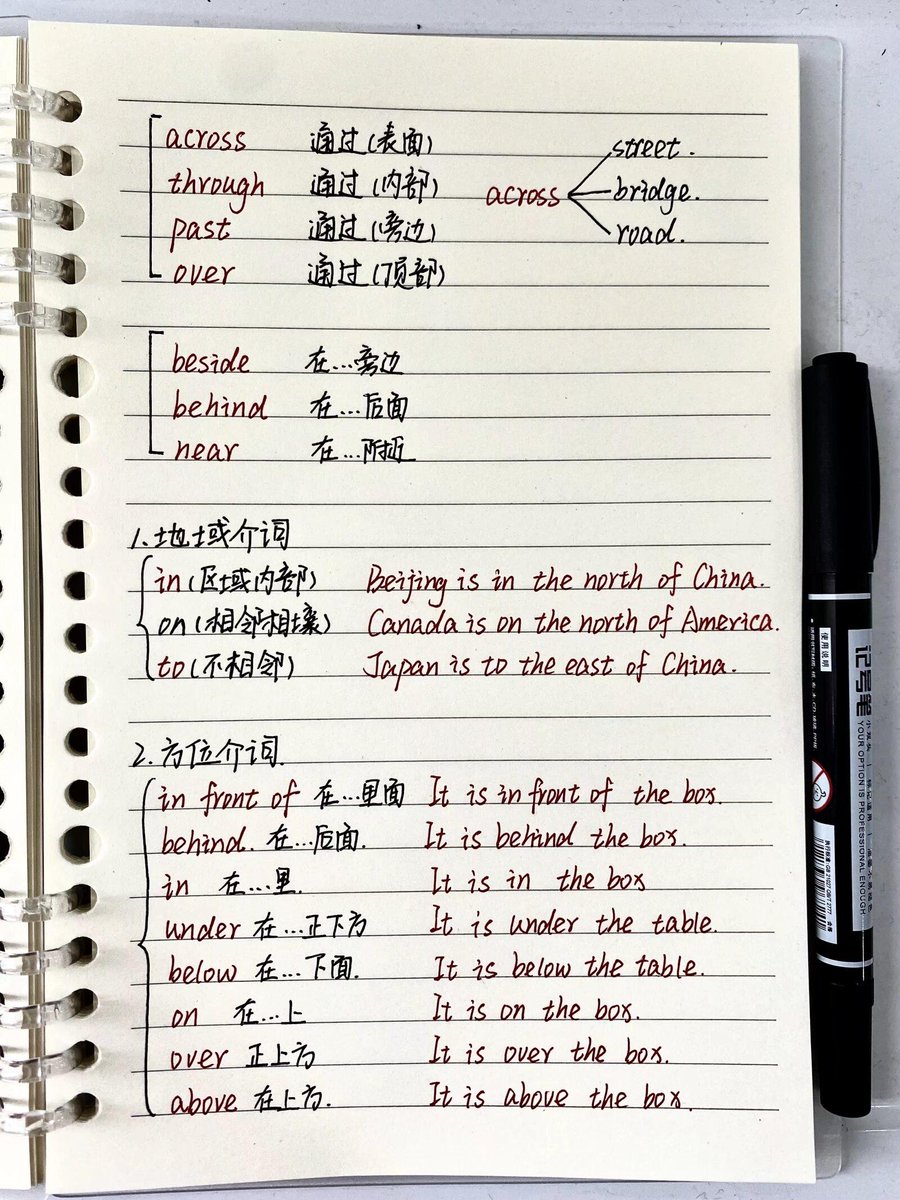 across 通过(表面)
through 通过(内部)
past 通过(旁边)
over 通过(顶部)
across
street.
bridge.
road.
beside 在...旁边
behind 在...后面
near 在...附近
1.地域介词
in(区域内部) Beijing is in the north of China.
on(相邻相壤) Canada is on the north of America.
to(不相邻) Japan is to the east of China.
2.方位介词
in front of 在...里面 It is in front of the box.
behind. 在...后面. It is behind the box.
in 在...里. It is in the box
under 在...正下方 It is under the table.
below 在...下面. It is below the table.
on 在...上 It is on the box.
over 正上方 It is over the box.
above 在上方. It is above the box.
使用说明
记号笔
YOUR OPTION IS PROFESSIONAL ENOUGH